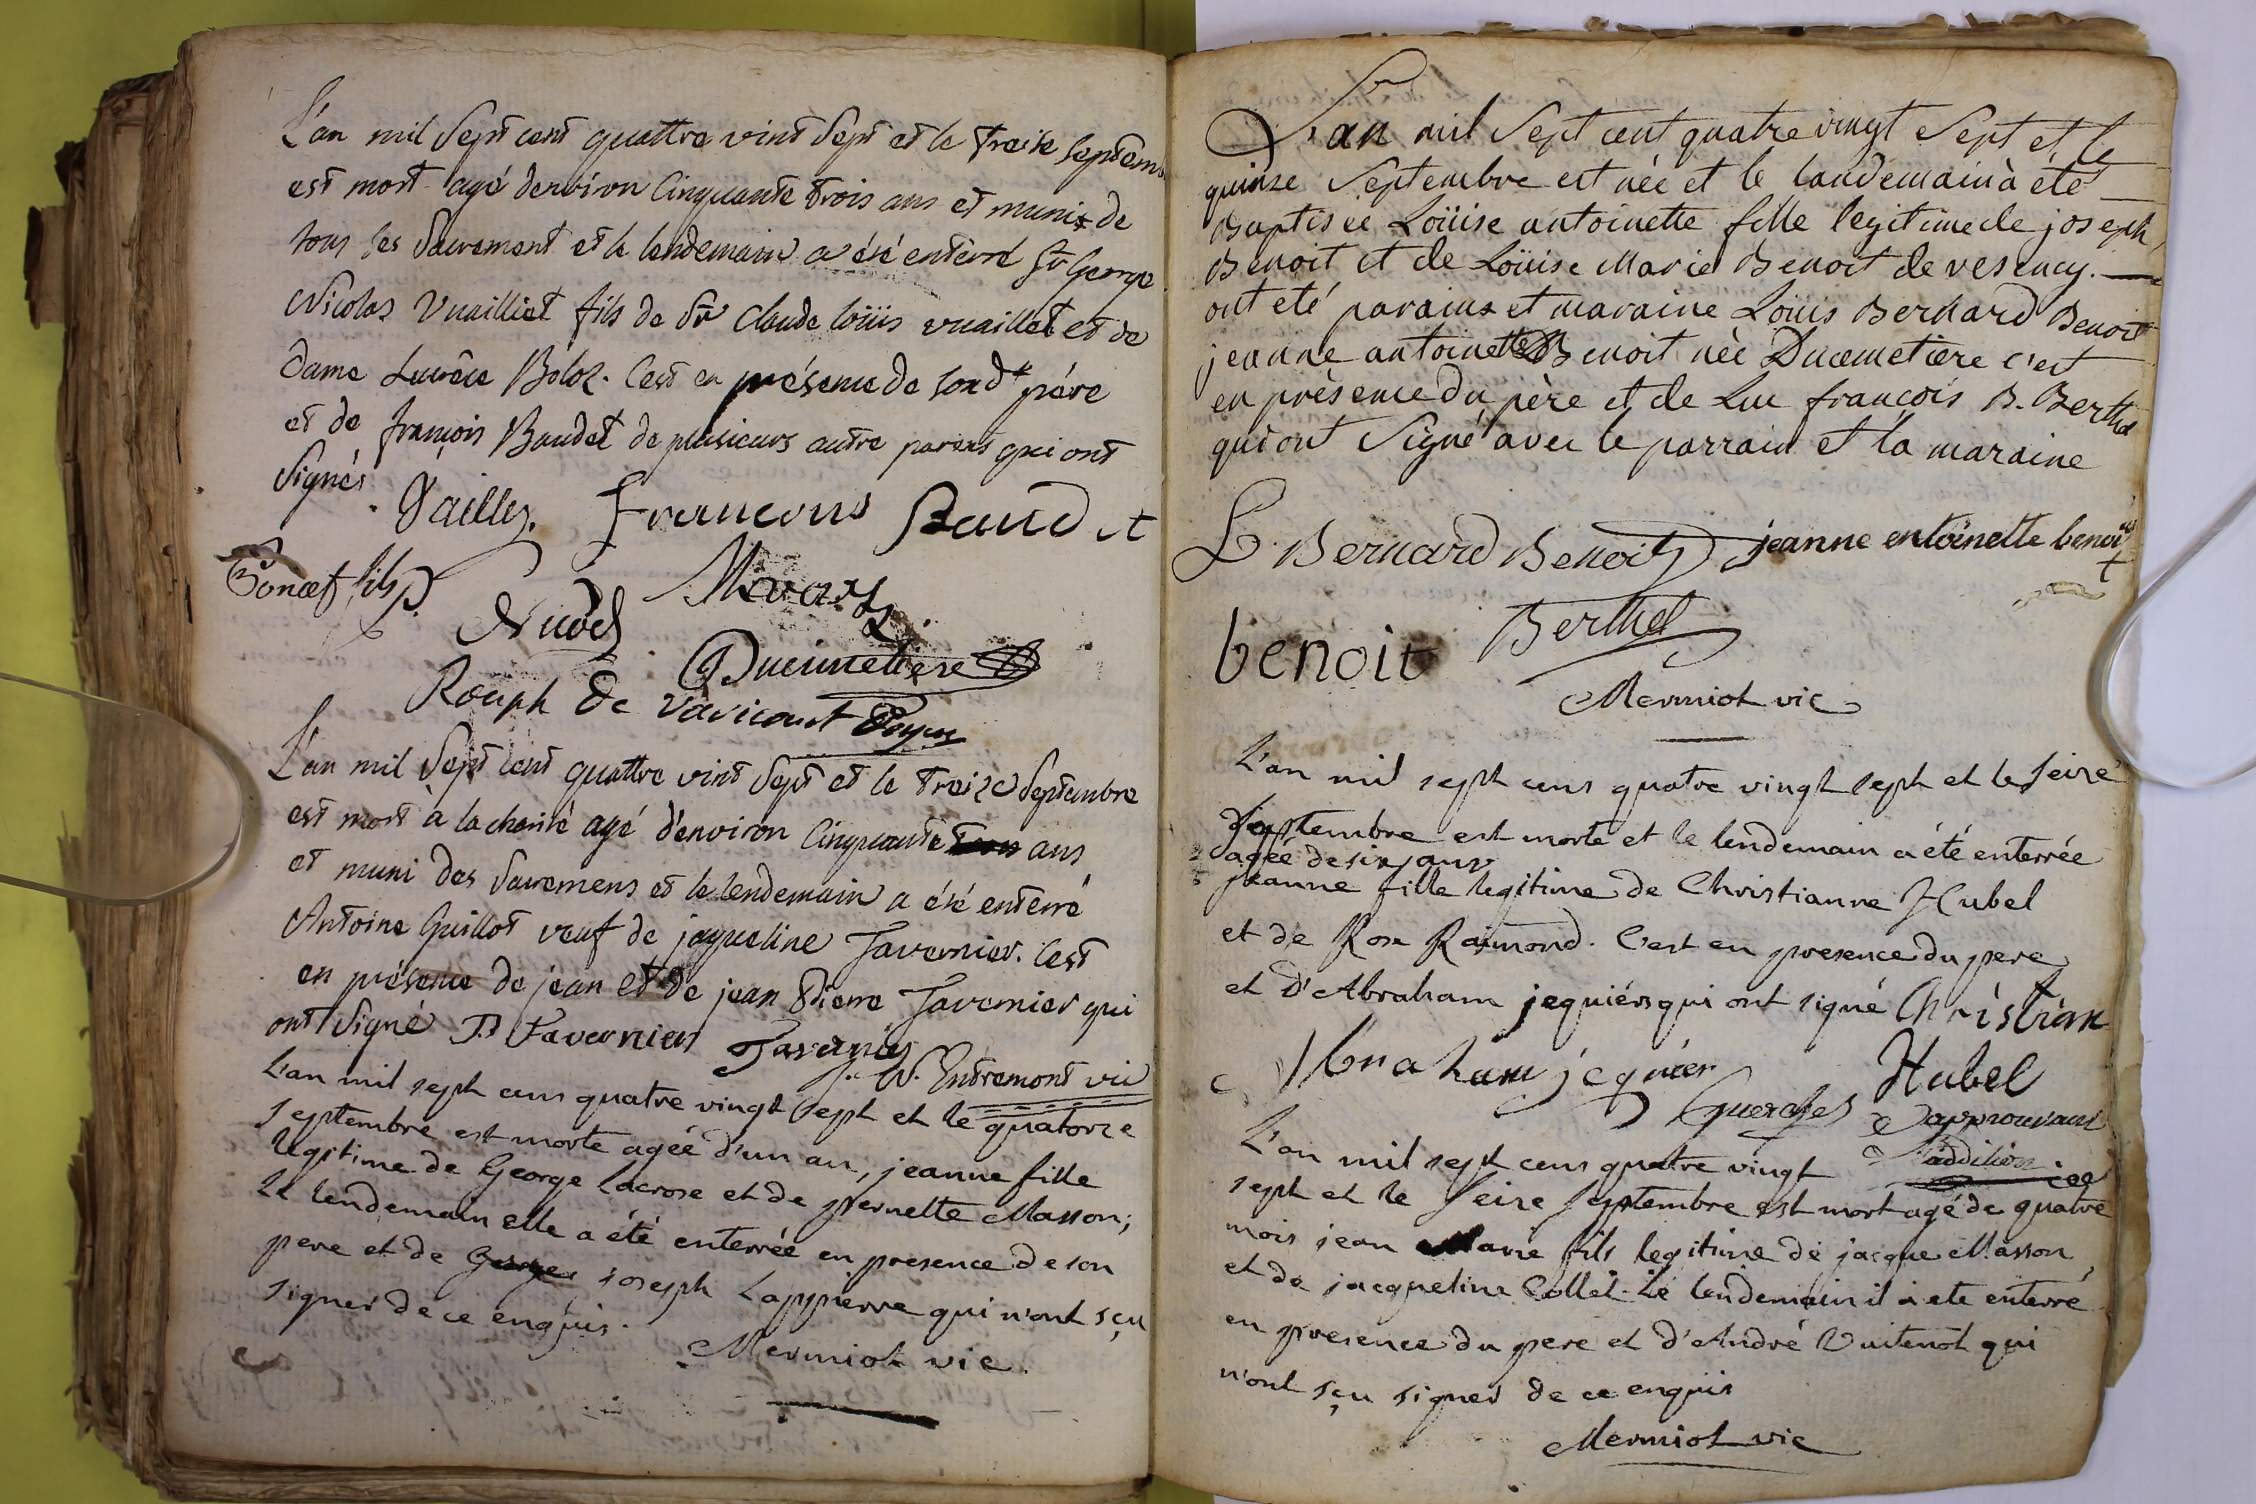 L'an mil Sept cent quattre vint Sept et le treise Septem
est mort agé denviron Cinquante trois ans et muni de
tous les Sacrement et le lendemain a été enterré Sr George
Nicolas Vuailliet fils de Sr Claude loüis vuaillet et de
dame Lucrêce Boloz. C'est en présence de sond.t pére
et de françois Baudet de plusieurs autre parens qui ont
Signés.
françois Baudet
fils
Nicod
Ducimetiere
Rouph de Varicourt
L'an mil Sept cent quattre vint Sept et le treize Septembre
est mort à la charité agé d'environ Cinquante ans
et muni des Sacremens et le lendemain a été enterré
Antoine Guillot veuf de jaqueline Tavernier. C'est
en présence de jean et de jean Pierre Tavernier qui
ont Signé P Tavernier Tavernier
W. Entremont vic
L'an mil sept cens quatre vingt sept et le quatorze
septembre est morte agée d'un an, jeanne fille
legitime de George Lacrose et de pernette Masson;
Le lendemain elle a été enterrée en presence de son
pere et de joseph Lapyerre qui n'ont sçu
signer de ce enquis.
Mermiot vic.
L'an mil Sept cent quatre vingt Sept et le
quinze Septembre est née et le landemain à été
Baptisée Loüise antoinette fille legitime de joseph
Benoit et de Loüise Marie Benoit de vesency.
ont eté parains et maraine Loüis Bernard Benoit
jeanne antoinette Benoit née Ducemetiere c'est
en présence du père et de Luc françois B. Berthet
qui ont Signé avec le parrain et la maraine
L. Bernard Benoit jeanne entoinette benoi
t
benoit Berthet
Mermiot vic
L'an mil sept cens quatre vingt sept et le seize
Septembre est morte et le lendemain a été enterrée
agée de six ans
jeanne fille legitime de Christianne Hubel
et de Rose Raimond. C'est en presence du pere
et d'Abraham jequiér qui ont signé Christian
Abraham jequier Hubel
approuvant
l'addition
L'an mil sept cens quatre vingt
sept et le Seize Septembre est mort agé de quatre
mois jean Marie fils legitime de jacque Masson
et de jacqueline Collet. Le lendemain il a ete enterré
en presence du pere et d'André Vuitenot qui
n'ont sçu signer de ce enquis
Mermiot vic